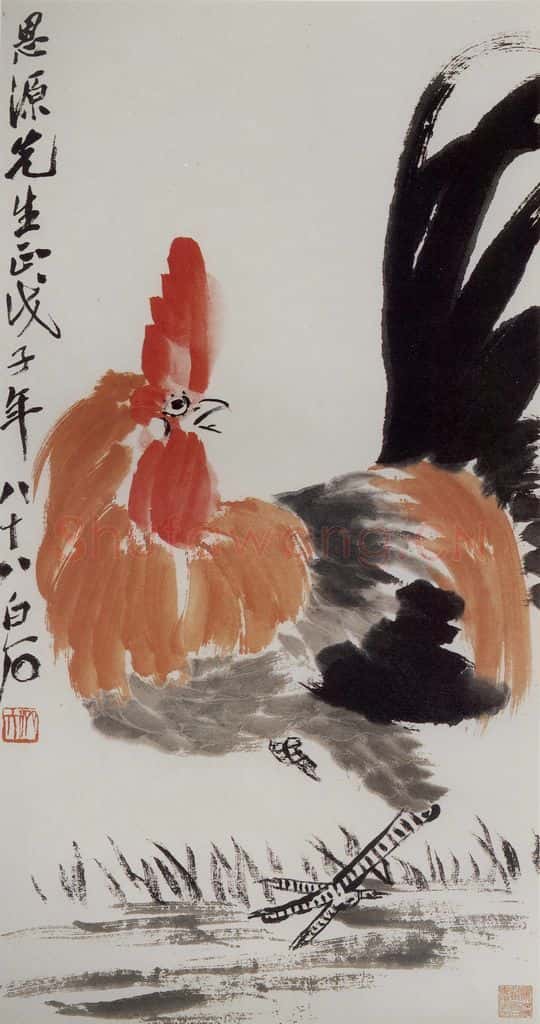 思源先生正戊子年八十八白石
Shufawang.CN